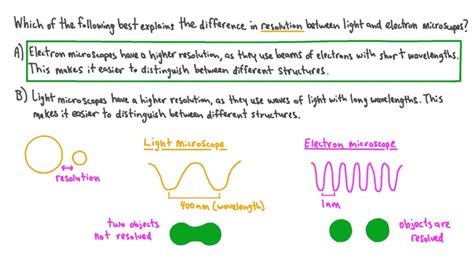 Which of the following best explains the difference in resolution between light and electron microscopes?
A) Electron microscopes have a higher resolution, as they use beams of electrons with short wavelengths.
This makes it easier to distinguish between different structures.
B) Light microscopes have a higher resolution, as they use waves of light with long wavelengths. This
makes it easier to distinguish between different structures.
Light microscope
Electron microscope
resolution
400nm (wavelength)
1nm
two objects
not resolved
objects are
resolved